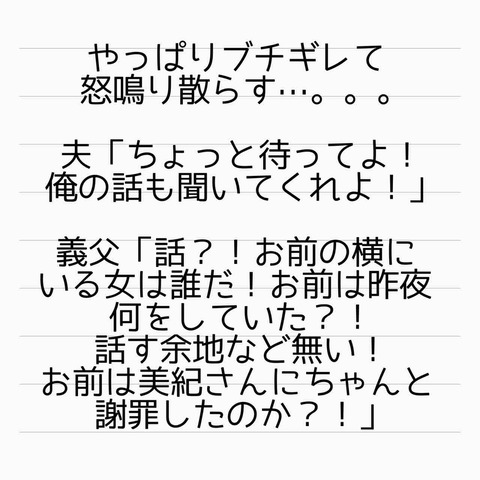 やっぱりブチギレて
怒鳴り散らす…。。。
夫「ちょっと待ってよ！
俺の話も聞いてくれよ！」
義父「話？！お前の横に
いる女は誰だ！お前は昨夜
何をしていた？！
話す余地など無い！
お前は美紀さんにちゃんと
謝罪したのか？！」